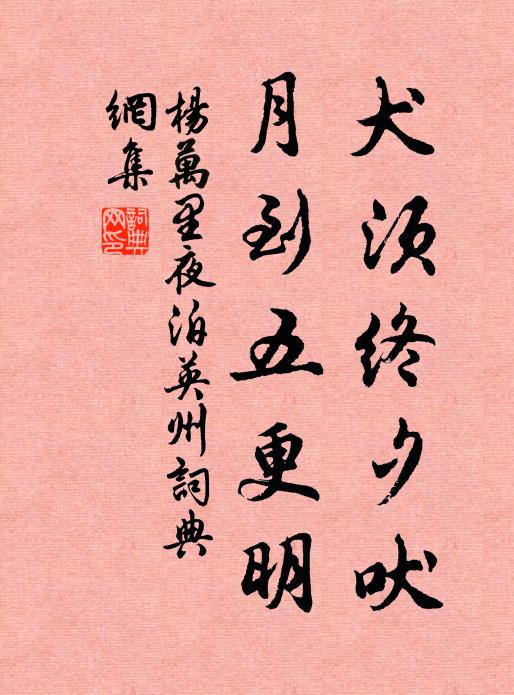 犬須終夕吠
月到五更明
楊萬里夜泊英州詞典
網集
詞典
网印